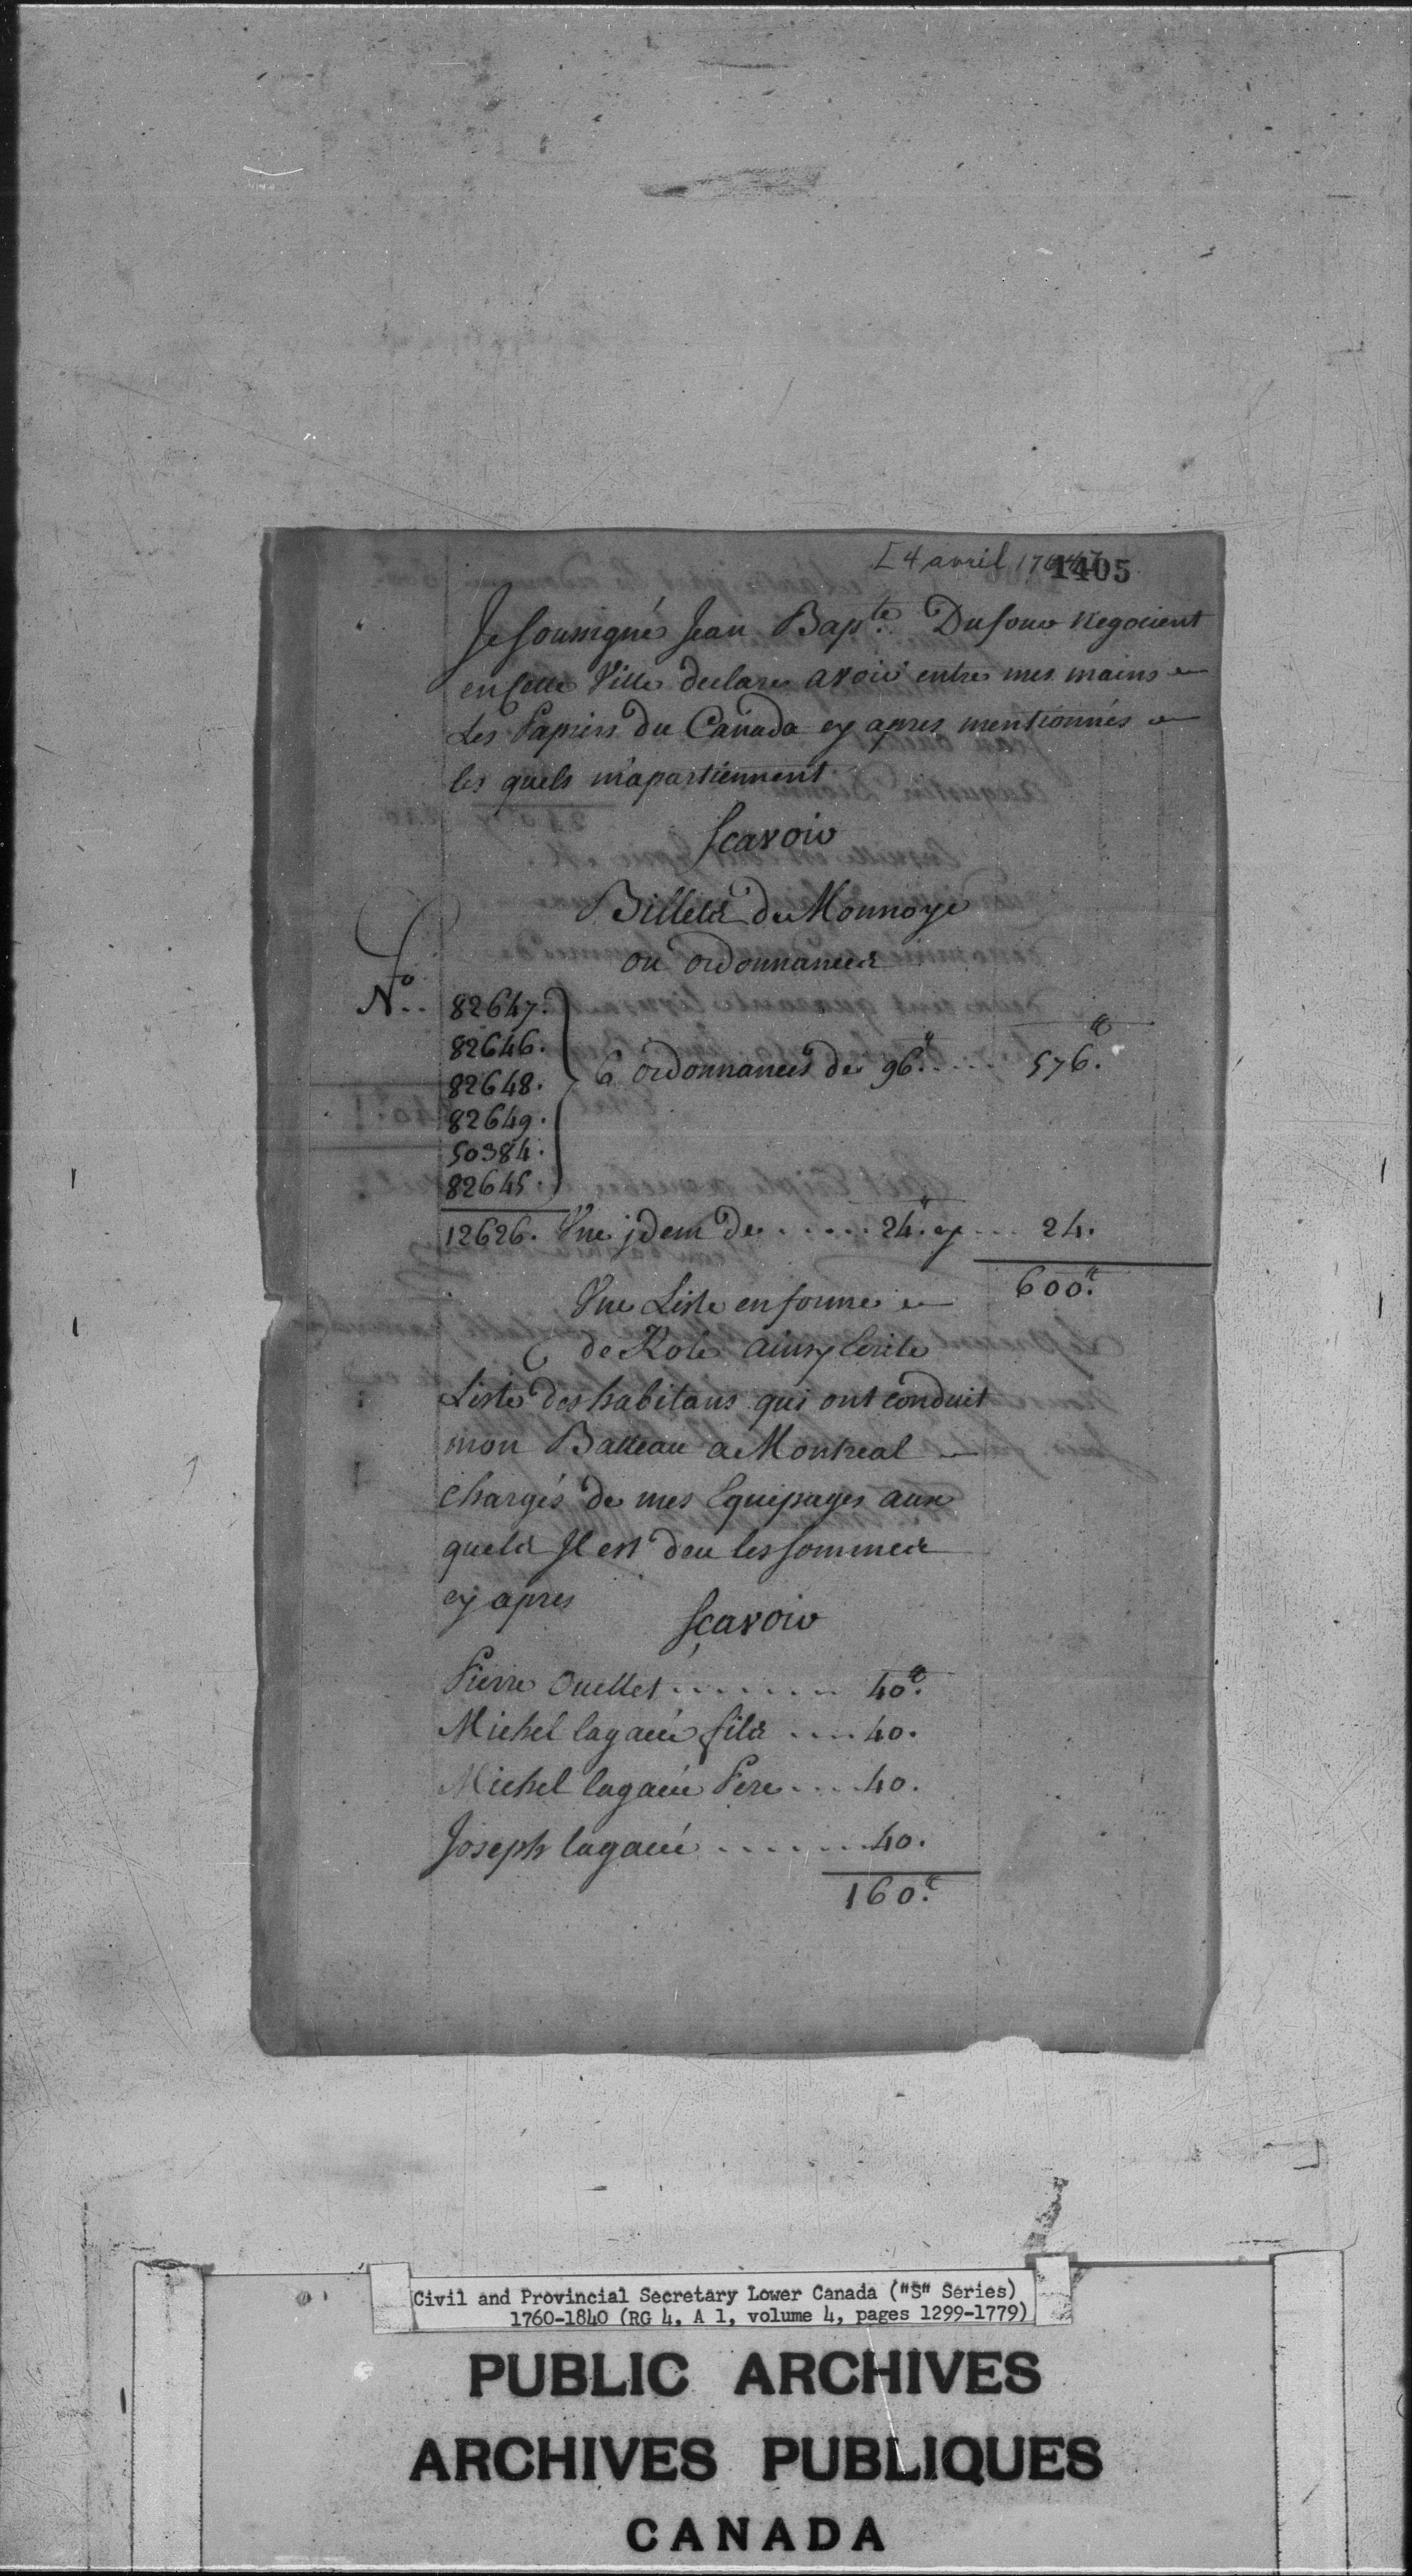 [4 avril 176
1405
Je Soussigné Jean Bapte. Dufour Negocient
en Cette Ville declare avoir entre mes mains
Les Papiers du Canada cy apres mentionnés
les quels m'apartiennent
Scavoir
Billets de Monnoye
ou ordonnances
No.. 82647.
82646.
82648. 6 ordonnances de 96.# ..... 576.#
82649.
50384.
82645.
12626. Une jdem de ..... 24.# cy ... 24.
600.#
Une Liste en forme
de Role ainsy Ecrite
Liste des habitans qui ont conduit
mon Batteau a Montreal
chargés de mes Equipages aux
quels Jl est deu les Sommes
cy apres
Sçavoir
Pierre Ouellet ....... 40.#
Michel lagacé fils .... 40.
Michel lagacé Pere .... 40.
Joseph lagacé ...... 40.
160.#
Civil and Provincial Secretary Lower Canada ("S" Series)
1760-1840 (RG 4, A 1, volume 4, pages 1299-1779)
PUBLIC ARCHIVES
ARCHIVES PUBLIQUES
CANADA